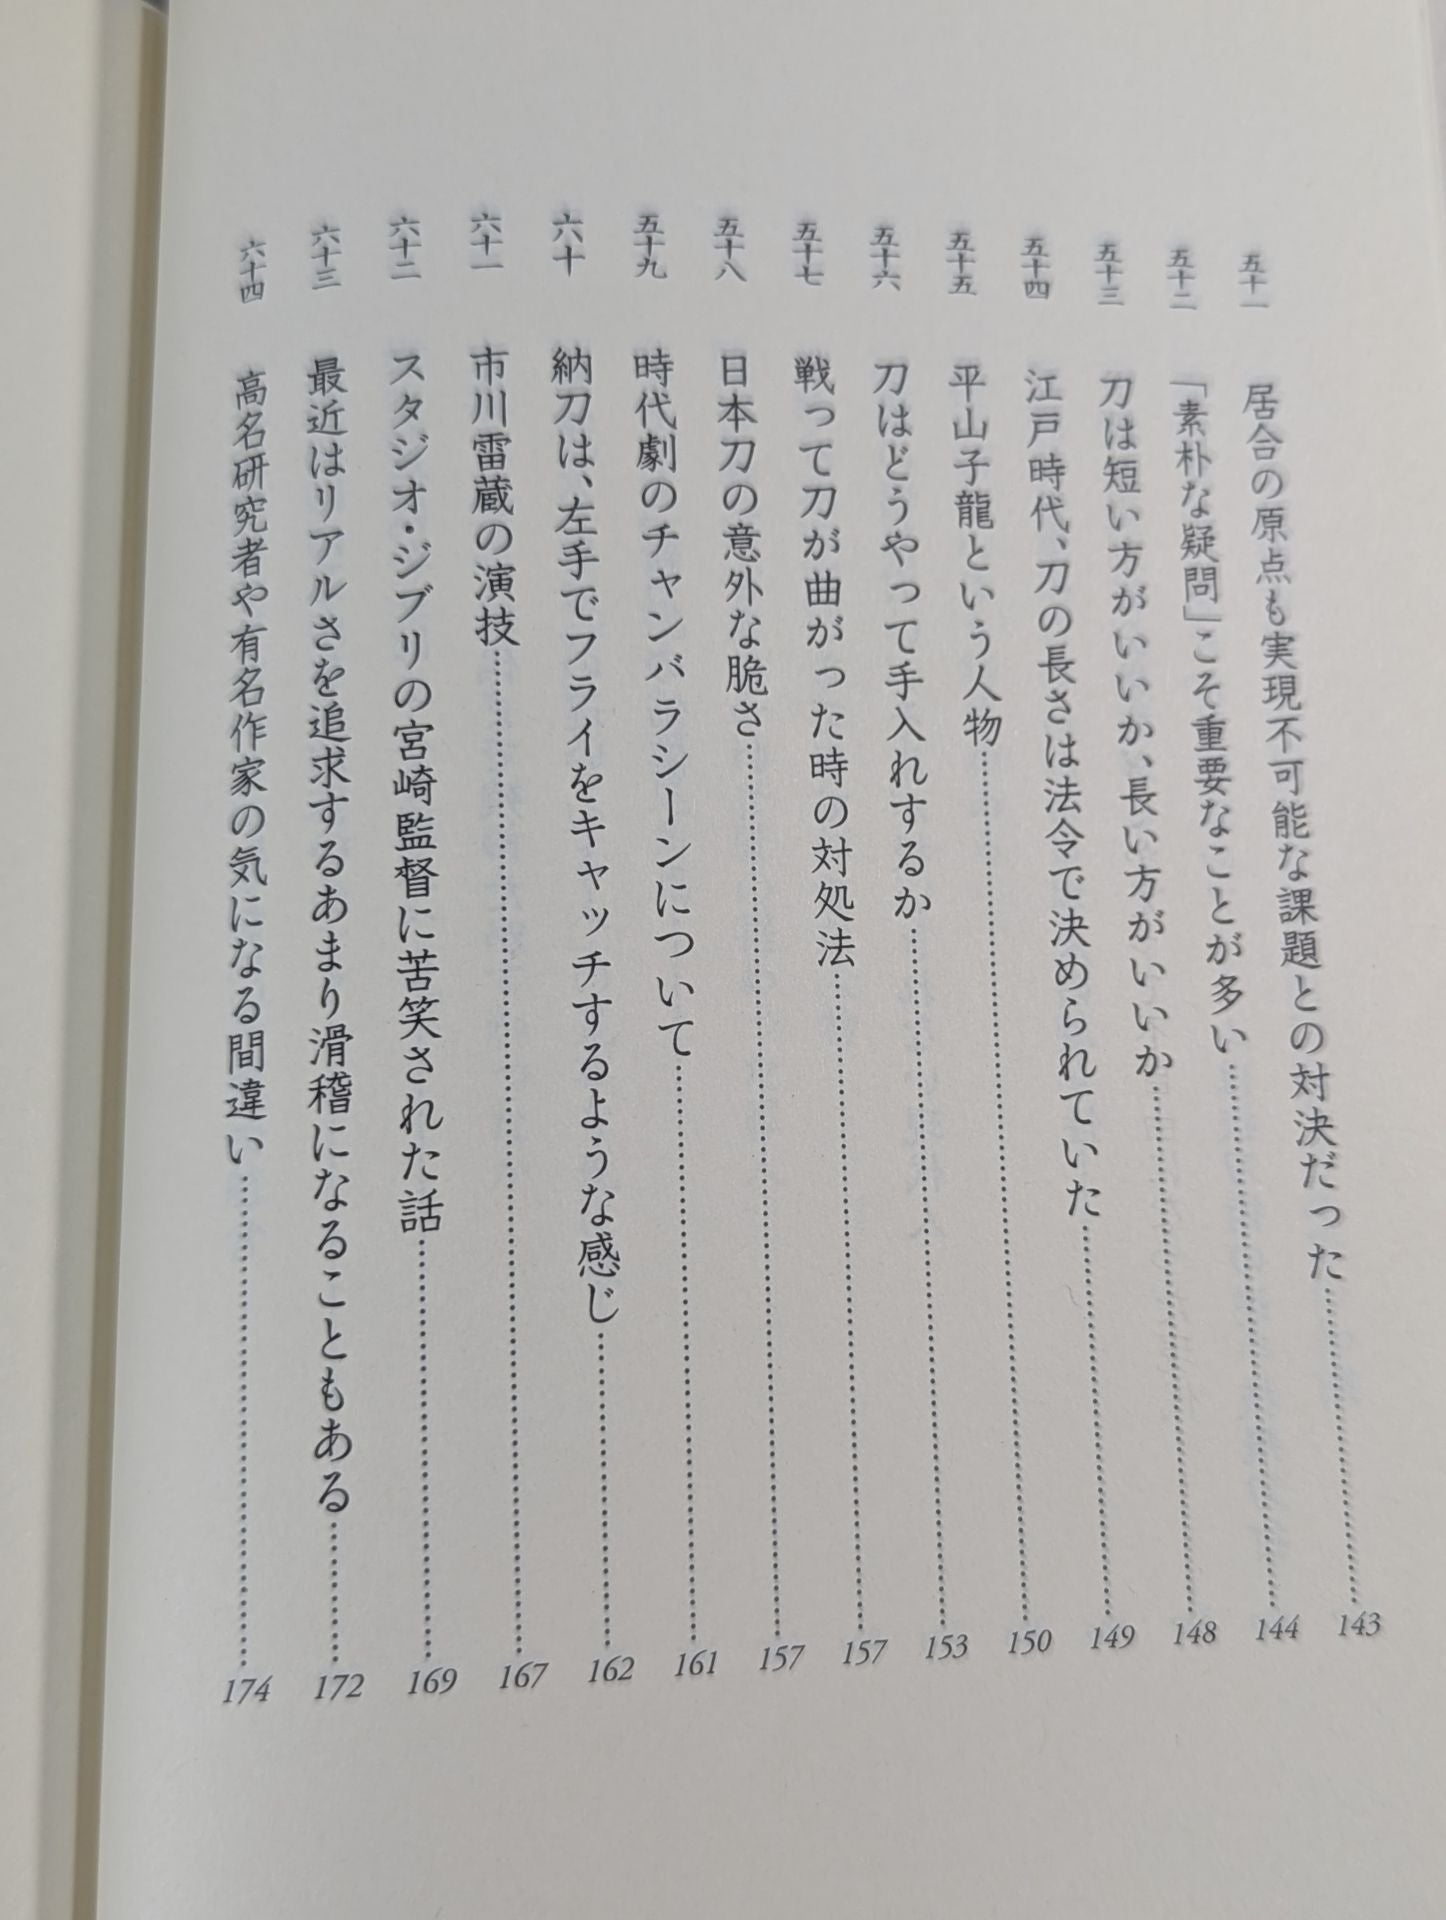 五十一 居合の原点も実現不可能な課題との対決だった……143
五十二 「素朴な疑問」こそ重要なことが多い……144
五十三 刀は短い方がいいか、長い方がいいか……148
五十四 江戸時代、刀の長さは法令で決められていた……149
五十五 平山子龍という人物……150
五十六 刀はどうやって手入れするか……153
五十七 戦って刀が曲がった時の対処法……157
五十八 日本刀の意外な脆さ……157
五十九 時代劇のチャンバラシーンについて……161
六十 納刀は、左手でフライをキャッチするような感じ……162
六十一 市川雷蔵の演技……167
六十二 スタジオ・ジブリの宮崎監督に苦笑された話……169
六十三 最近はリアルさを追求するあまり滑稽になることもある……172
六十四 高名研究者や有名作家の気になる間違い……174